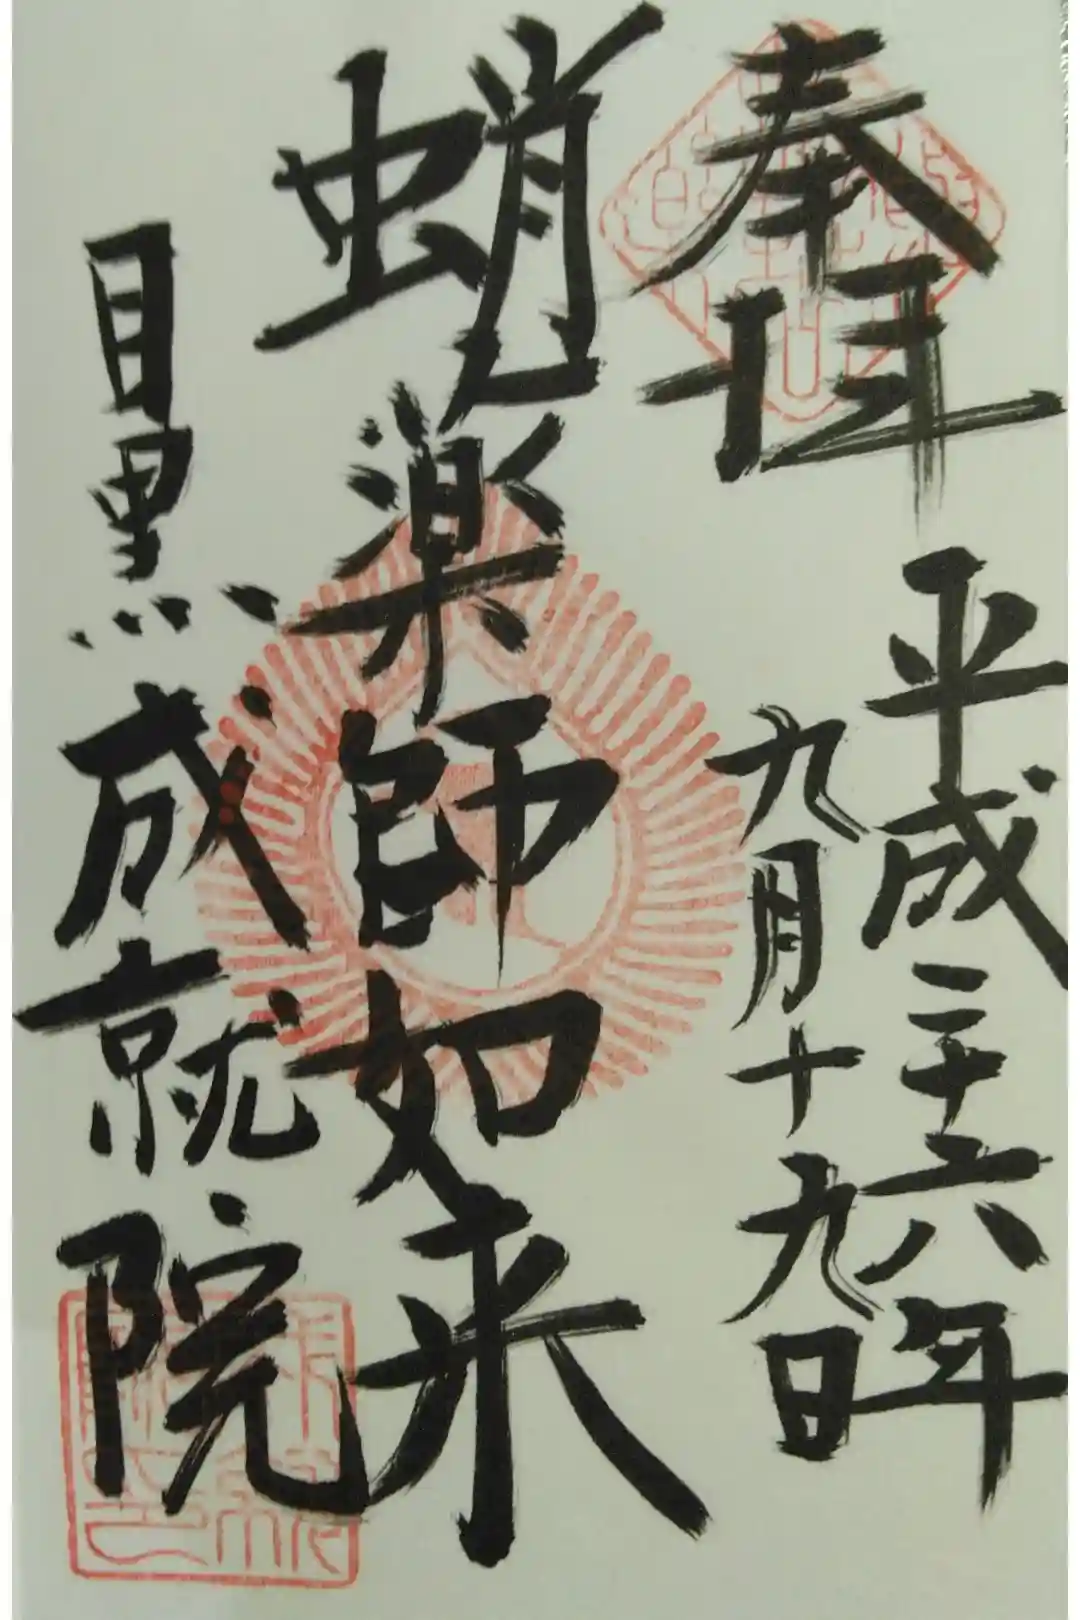 奉拝
平成二十六年
九月十九日
蛸薬師如来
目黒成就院